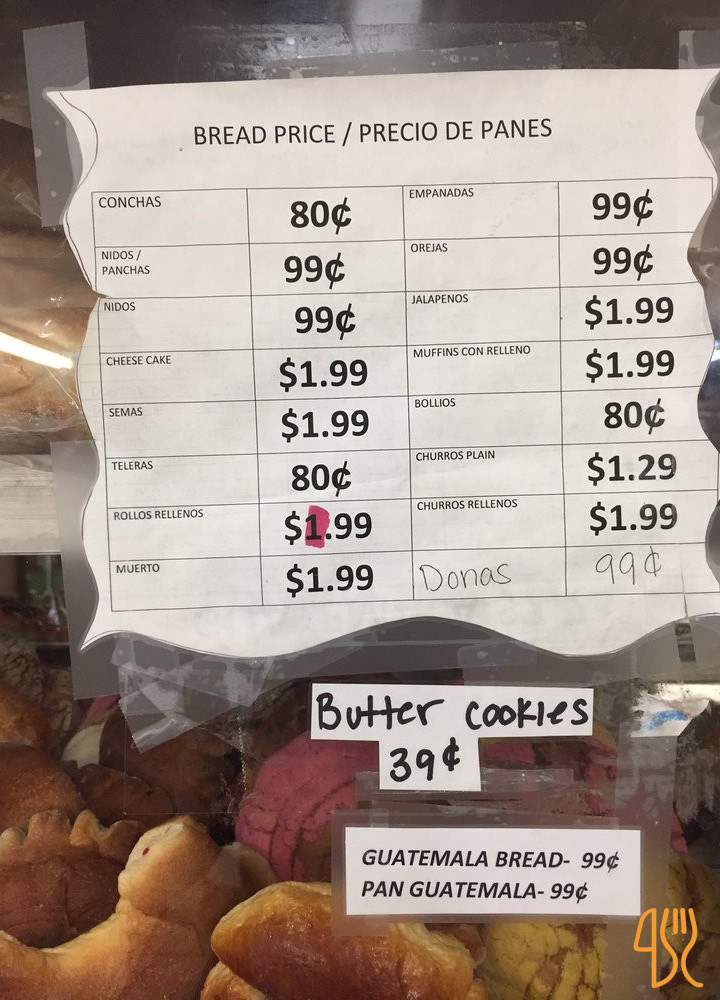 BREAD PRICE / PRECIO DE PANES
CONCHAS 80¢ EMPANADAS 99¢
NIDOS / PANCHAS 99¢ OREJAS 99¢
NIDOS 99¢ JALAPENOS $1.99
CHEESE CAKE $1.99 MUFFINS CON RELLENO $1.99
SEMAS $1.99 BOLLIOS 80¢
TELERAS 80¢ CHURROS PLAIN $1.29
ROLLOS RELLENOS $1.99 CHURROS RELLENOS $1.99
MUERTO $1.99 Donas 99¢
Butter cookies
39¢
GUATEMALA BREAD- 99¢
PAN GUATEMALA- 99¢